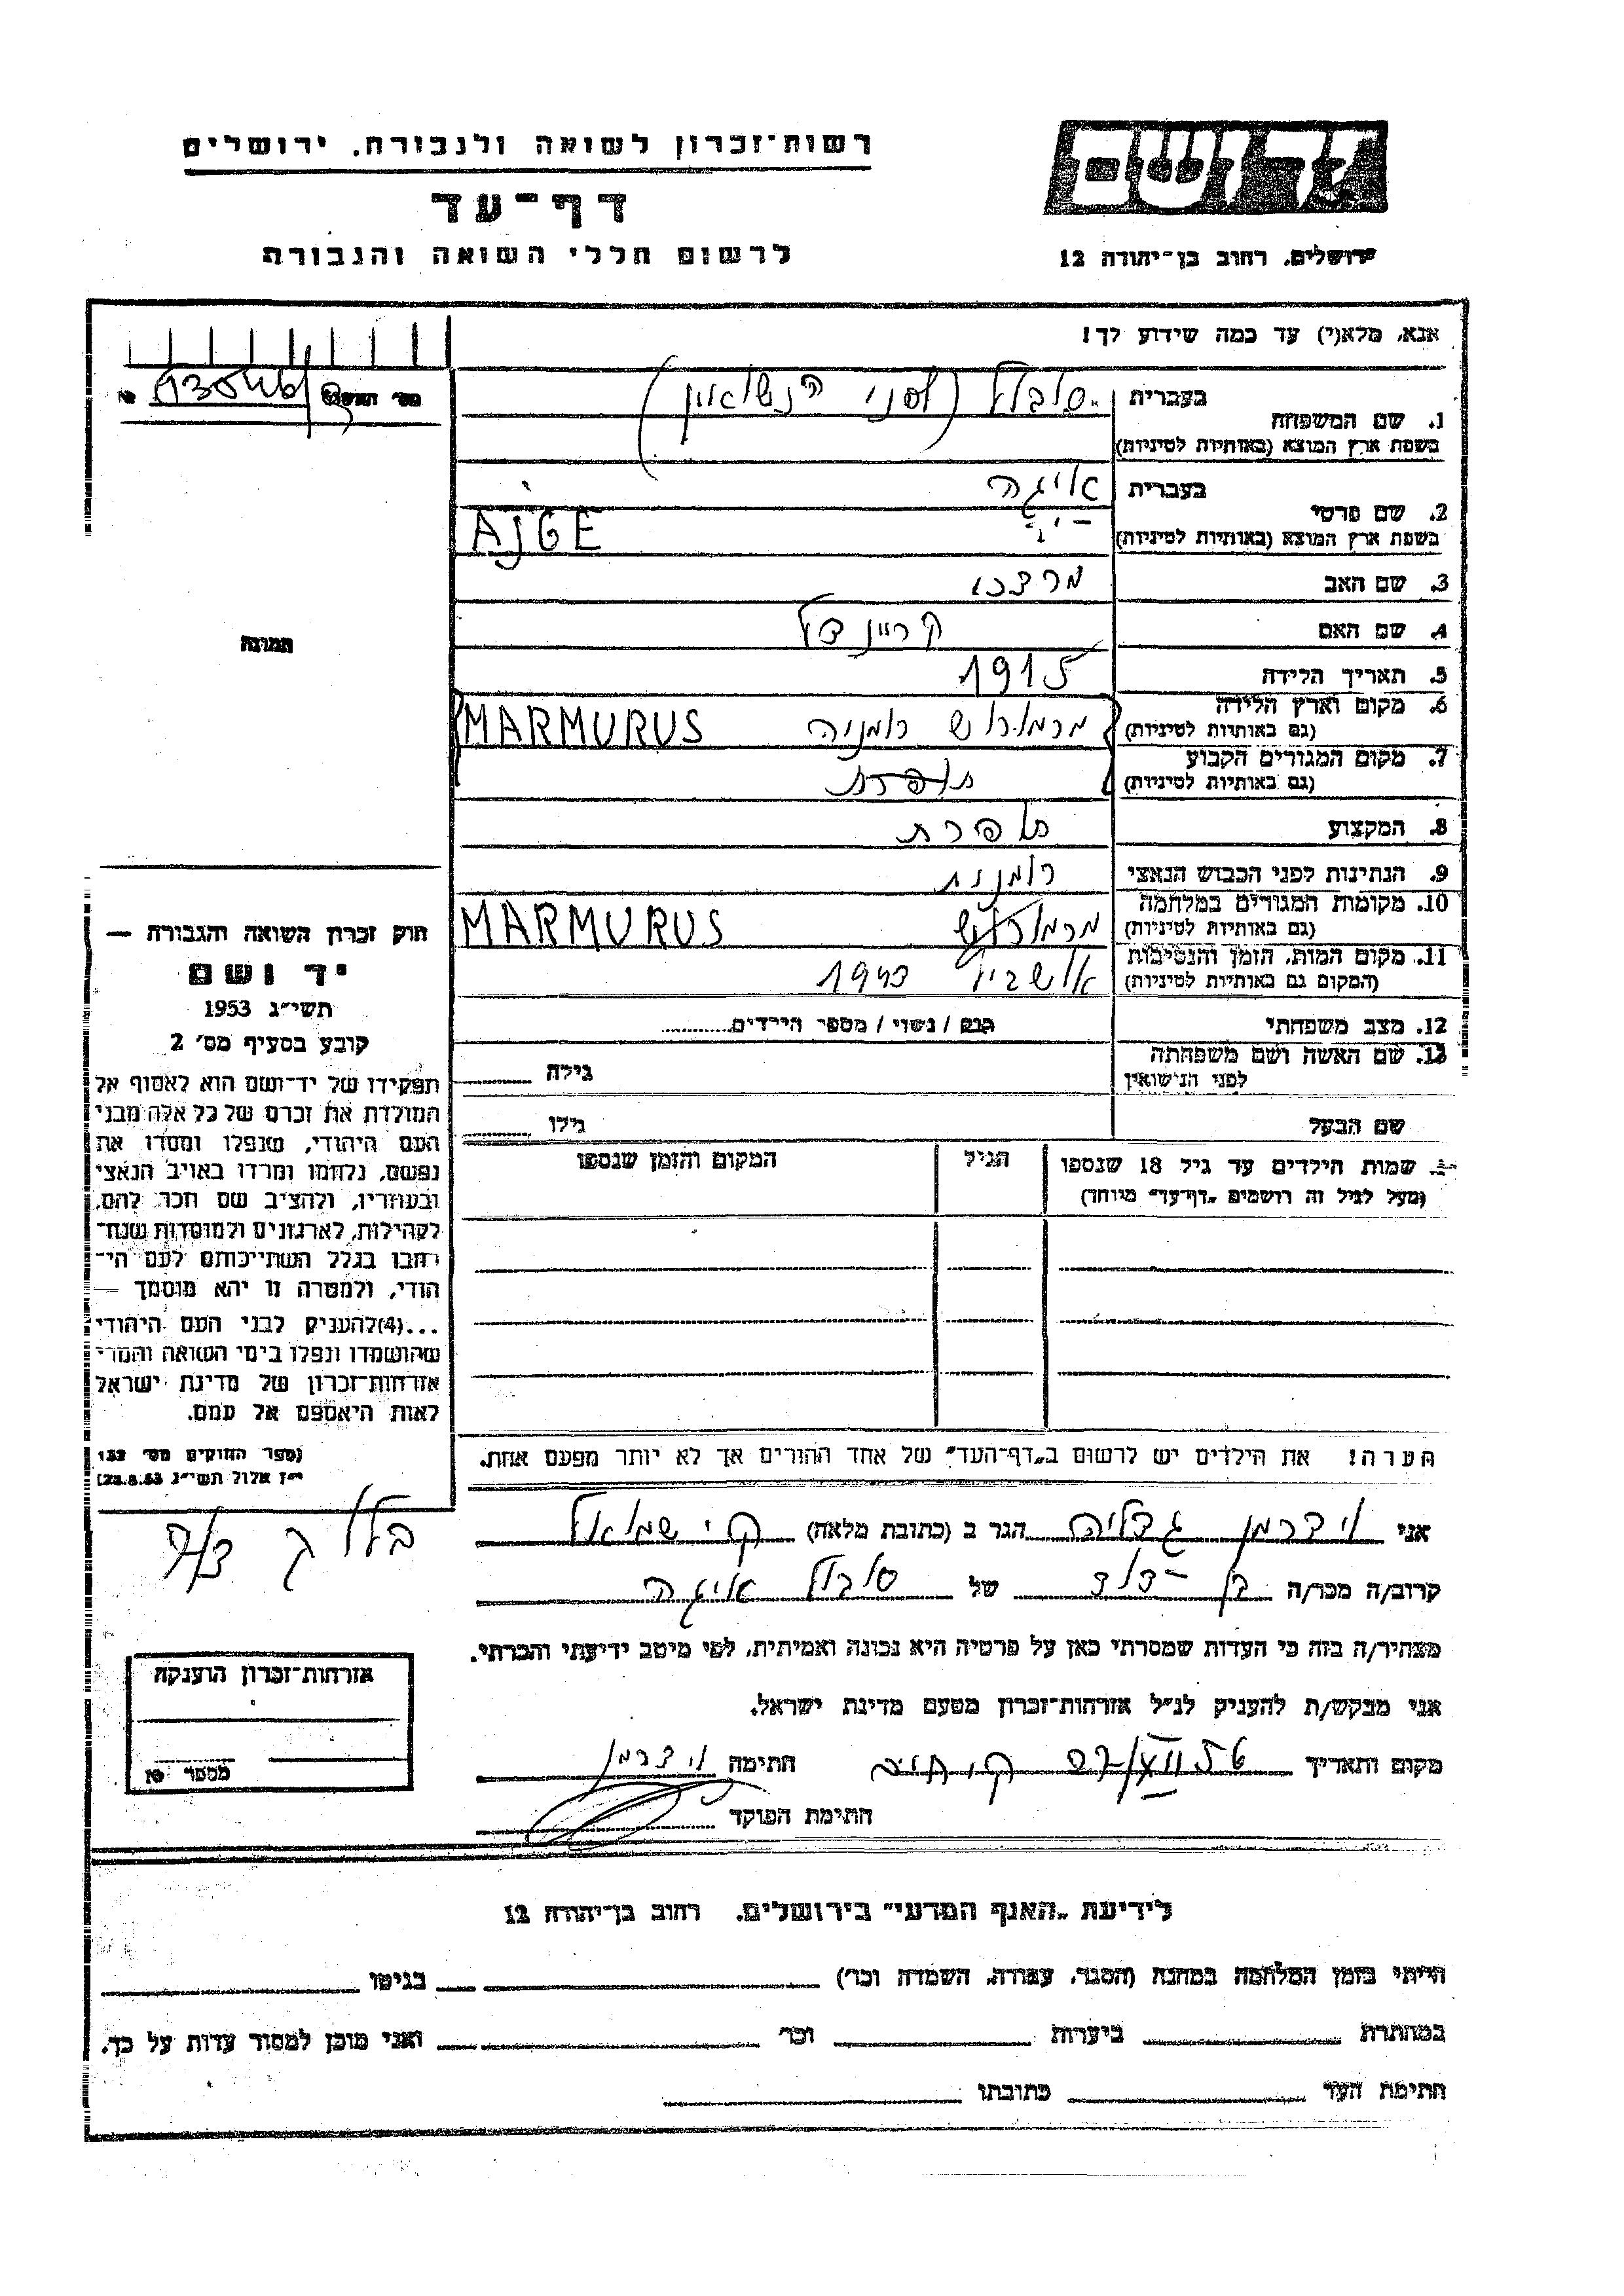 רשות־זכרון לשואה ולגבורה, ירושלים
דף־עד
לרשום חללי השואה והגבורה
ירושלים, רחוב בן־יהודה 12
אנא, מלא(י) עד כמה שידוע לך!
1. שם המשפחה
בעברית (לפני הנשואין)
בשפת ארץ המוצא (באותיות לטיניות)
2. שם פרטי
בעברית איגה
בשפת ארץ המוצא (באותיות לטיניות) AJGE
3. שם האב מרדכי
4. שם האם קריינדל
5. תאריך הלידה 1915
6. מקום וארץ הלידה
(גם באותיות לטיניות) מרמורוש רומניה MARMURUS
7. מקום המגורים הקבוע
(גם באותיות לטיניות) תופרת
8. המקצוע תופרת
9. הנתינות לפני הכבוש הנאצי רומנית
10. מקומות המגורים במלחמה
(גם באותיות לטיניות) מרמורוש MARMURUS
11. מקום המות, הזמן והנסיבות
(המקום גם באותיות לטיניות) אושביץ 1943
12. מצב משפחתי רווק / נשוי / מספר הילדים
13. שם האשה ושם משפחתה
לפני הנישואין גילה
שם הבעל גילו
שמות הילדים עד גיל 18 שנספו הגיל המקום והזמן שנספו
(מעל לגיל זה רושמים „דף־עד״ מיוחד)
הערה! את הילדים יש לרשום ב„דף־העד״ של אחד ההורים אך לא יותר מפעם אחת.
מס׳
תמונה
חוק זכרון השואה והגבורה —
יד ושם
תשי״ג 1953
קובע בסעיף מס׳ 2
תפקידו של יד־ושם הוא לאסוף אל
המולדת את זכרם של כל אלה מבני
העם היהודי, שנפלו ומסרו את
נפשם, נלחמו ומרדו באויב הנאצי
ובעוזריו, ולהציב שם וזכר להם,
לקהילות, לארגונים ולמוסדות שנח־
רבו בגלל השתייכותם לעם הי־
הודי, ולמטרה זו יהא מוסמך —
...(4) להעניק לבני העם היהודי
שהושמדו ונפלו בימי השואה והמרי
אזרחות־זכרון של מדינת ישראל
לאות היאספם אל עמם.
(ספר החוקים מס׳ 132
י״ז אלול תשי״ג 28.8.53)
אני וידרמן גדליה הגר ב (כתובת מלאה) ק׳ שמואל
קרוב/ה מכר/ה בן־דוד של איגה
מצהיר/ה בזה כי העדות שמסרתי כאן על פרטיה היא נכונה ואמיתית, לפי מיטב ידיעתי והכרתי.
אני מבקש/ת להעניק לנ״ל אזרחות־זכרון מטעם מדינת ישראל.
מקום ותאריך חתימה וידרמן
חתימת הפוקד
אזרחות־זכרון הוענקה
מספר №
לידיעת „האגף המדעי״ בירושלים. רחוב בן־יהודה 12
הייתי בזמן המלחמה במחנה (הסגר, עבודה, השמדה וכר׳) בגיטו
במחתרת ביערות וכר׳ ואני מוכן למסור עדות על כך.
חתימת העד כתובתו